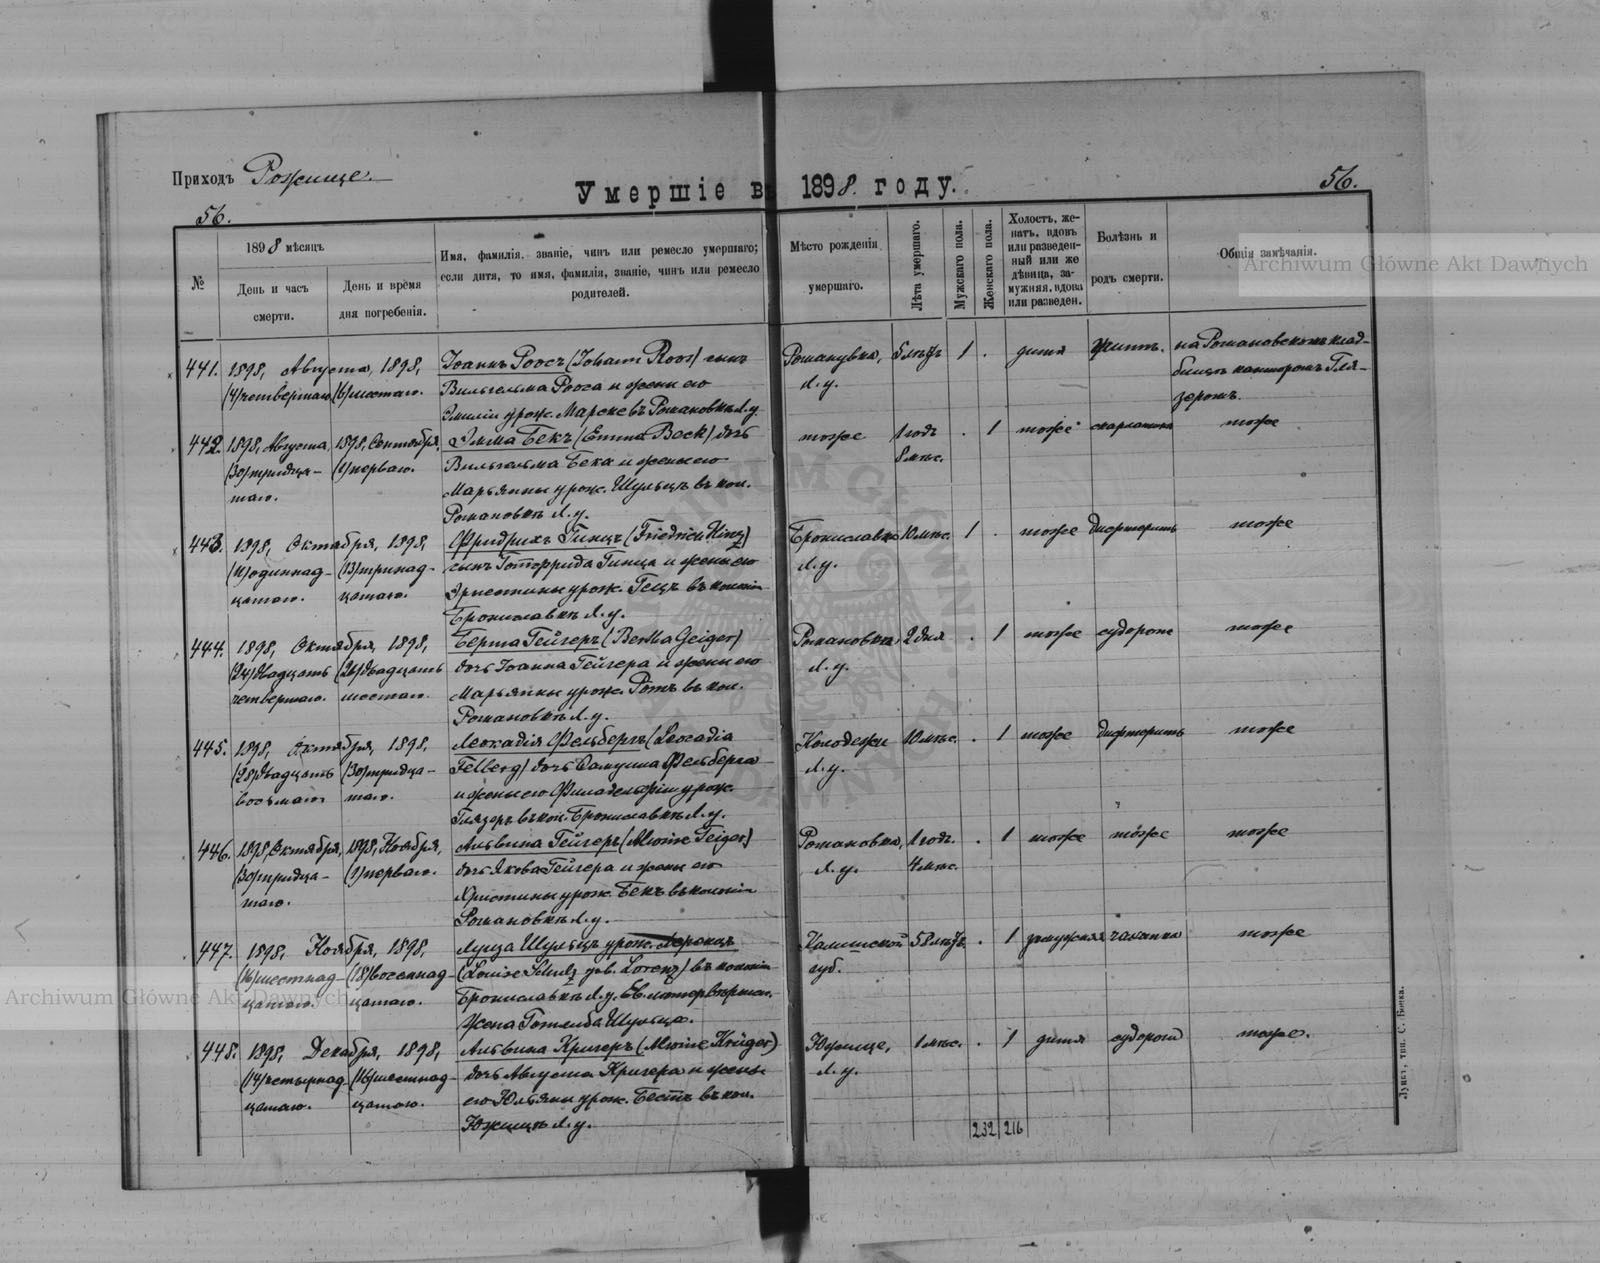 Приходъ Рожище.
Умершіе въ 1898. году.
56.
56.
№
1898 мѣсяцъ
День и часъ смерти.
День и время дня погребенія.
Имя, фамилія, званіе, чинъ или ремесло умершаго;
если дитя, то имя, фамилія, званіе, чинъ или ремесло
родителей.
Мѣсто рожденія
умершаго.
Лѣта умершаго.
Мужскаго пола.
Женскаго пола.
Холостъ, же-
натъ, вдовъ
или разведен-
ный или же
дѣвица, за-
мужняя, вдова
или разведен.
Болѣзнь и
родъ смерти.
Общія замѣчанія.
Archiwum Główne Akt Dawnych
441. 1898, Августа, 1898, Іоаннъ Роосъ (Johann Roos) сынъ Романувка, 5 лѣтъ 1 . дитя на Романовскомъ клад-
(4) четвертаго (6) шестаго. Вильгельма Рооса и жены его Л. у. бищѣ канторомъ Гля-
Эмиліи урож. Марске въ Романовкѣ Л. у. зеромъ.
442. 1898, Августа, 1898, Сентября, Эмма Бекъ (Emma Beck) дочь тоже 1 годъ . 1 тоже скарлатина тоже
(30) тридца- (1) перваго. Вильгельма Бека и жены его 8 мѣс.
таго. Марьянны урож. Шульцъ въ кол.
Романовкѣ Л. у.
443. 1898, Октября, 1898, Фридрихъ Гинцъ (Friedrich Hinz) Брониславка 10 мѣс. 1 . тоже дифтеритъ тоже
(11) одиннад- (13) тринад- сынъ Готфрида Гинца и жены его Л. у.
цатаго. цатаго. Христины урож. Гецъ въ колоніи
Брониславкѣ Л. у.
444. 1898, Октября, 1898, Берта Гейгеръ (Bertha Geiger) Романовка, 2 дня . 1 тоже судороже тоже
(24) двадцать (26) двадцать дочь Іоанна Гейгера и жены его Л. у.
четвертаго. шестаго. Марьянны урож. Ротъ въ кол.
Романовкѣ Л. у.
445. 1898, Октября, 1898, Леокадія Фельбергъ (Leocadia Колодежи 10 мѣс. . 1 тоже дифтеритъ тоже
(28) двадцать (30) тридца- Felberg) дочь Самуила Фельберга Л. у.
восьмаго таго. и жены его Филадельфіи урож.
Глязеръ въ кол. Брониславкѣ Л. у.
446. 1898, Октября, 1898, Ноября, Альвина Гейгеръ (Alwine Geiger) Романовка, 1 годъ. . 1 тоже тоже тоже
(30) тридца- (1) перваго. дочь Якова Гейгера и жены его Л. у. 4 мѣс.
таго. Христины урож. Бекъ въ колоніи
Романовкѣ Л. у.
447. 1898, Ноября, 1898, Луиза Шульцъ урож. Лоренцъ Калишской 58 лѣтъ . 1 замужняя чахотка тоже
(16) шестнад- (18) восемнад- (Louise Schulz geb. Lorenz) въ колоніи губ.
цатаго. цатаго. Брониславкѣ Л. у.
Жена Готлиба Шульца.
448. 1898, Декабря, 1898, Альвина Кригеръ (Alwine Krüger) Южище, 1 мѣс. . 1 дитя судороги тоже.
(14) четырнад- (16) шестнад- дочь Августа Кригера и жены Л. у.
цатаго. цатаго. его Юльяны урож. въ кол.
Южищѣ Л. у.
232 216
Archiwum Główne Akt Dawnych
Луцкъ, тип. С. Бонка.